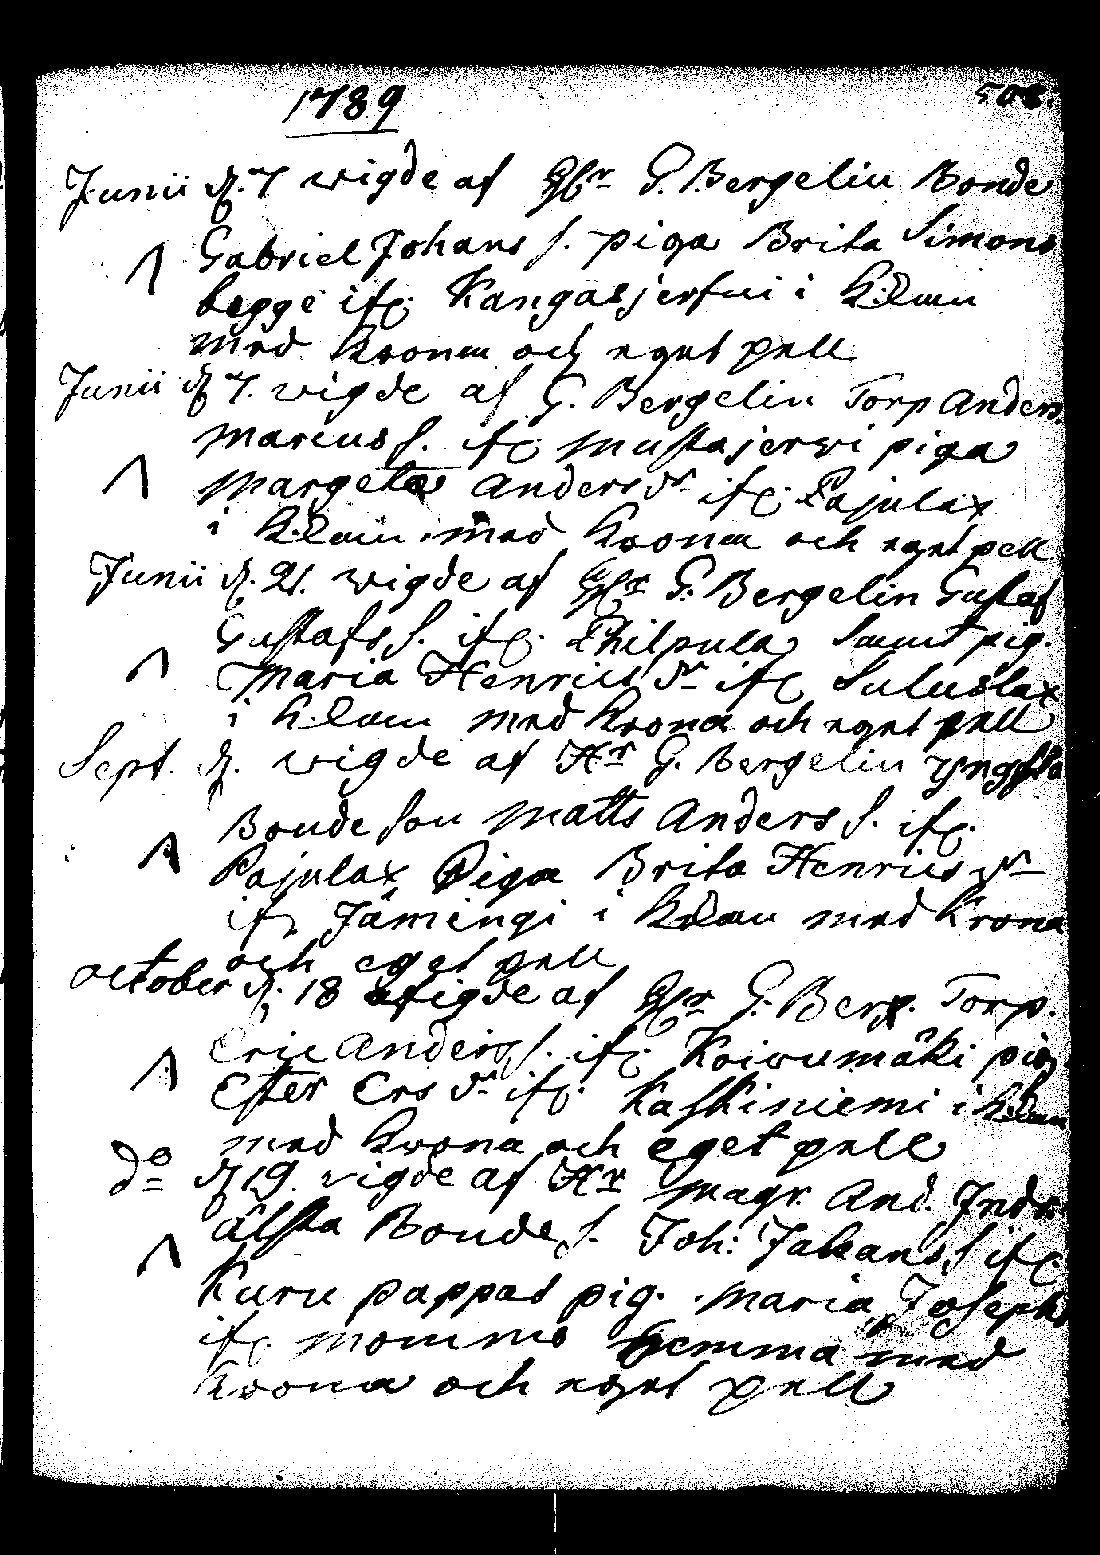 1789
508
Junii d. 7 wigde af Hr G. Bergelin Bonde
Gabriel Johans s. piga Brita Simons
begge ifr. Kangasjerfui i K:Lau
med Krona och eget pell
Junii d 7. wigde af G. Bergelin Torp Anders
Marcus s. ifr. Mustajerwi piga
Margeta Anders dr ifr. Pajulax
i K:Lau med Krona och eget pell
Junii d. 21. wigde af Hr G. Bergelin Gustaf
Gustafs s. ifr. Philpula samt pig.
Maria Henrics dr ifr Saluslax
i K:Lau med Krona och eget pell
Sept. d. wigde af Hr G. Bergelin yngsta
Bonde son Matts Anders s. ifr.
Pajulax Piga Brita Henrics dr
ifr Jämingi i K:Lau med Krona
och eget pell
October d. 18 wigde af Hr G. Berg. Torp.
Eric Anders s. ifr. Koiwumäki pig
Ester Ers dr ifr. Kaskiniemi i K:Lau
med Krona och eget pell
do d 19. vigde af Hr Magr. And. Indr
älsta Bonde s. Joh: Johans s ifr.
Kuru pappas pig. Maria Josephs
ifr. Mommo hemma med
Krona och eget pell